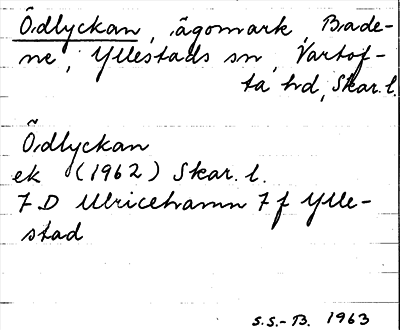 Ödlyckan, ägomark, Brade-
ne, Yllestads sn, Vartof-
ta hd, Skar. l.
Ödlyckan
ek (1962) Skar. l.
7 D Ulricehamn 7 f Ylle-
stad
S.S.-B. 1963